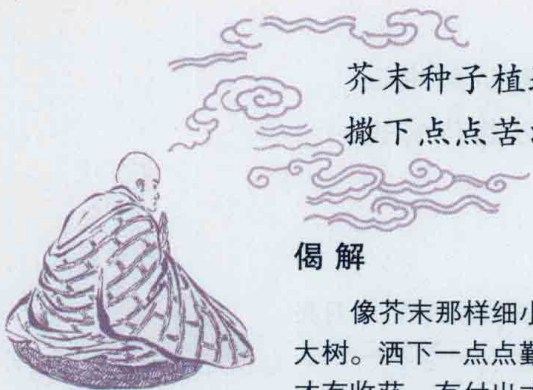 芥末种子植
撒下点点苦
偈解
像芥末那样细小
大树。洒下一点点勤
才有收获，有付出才